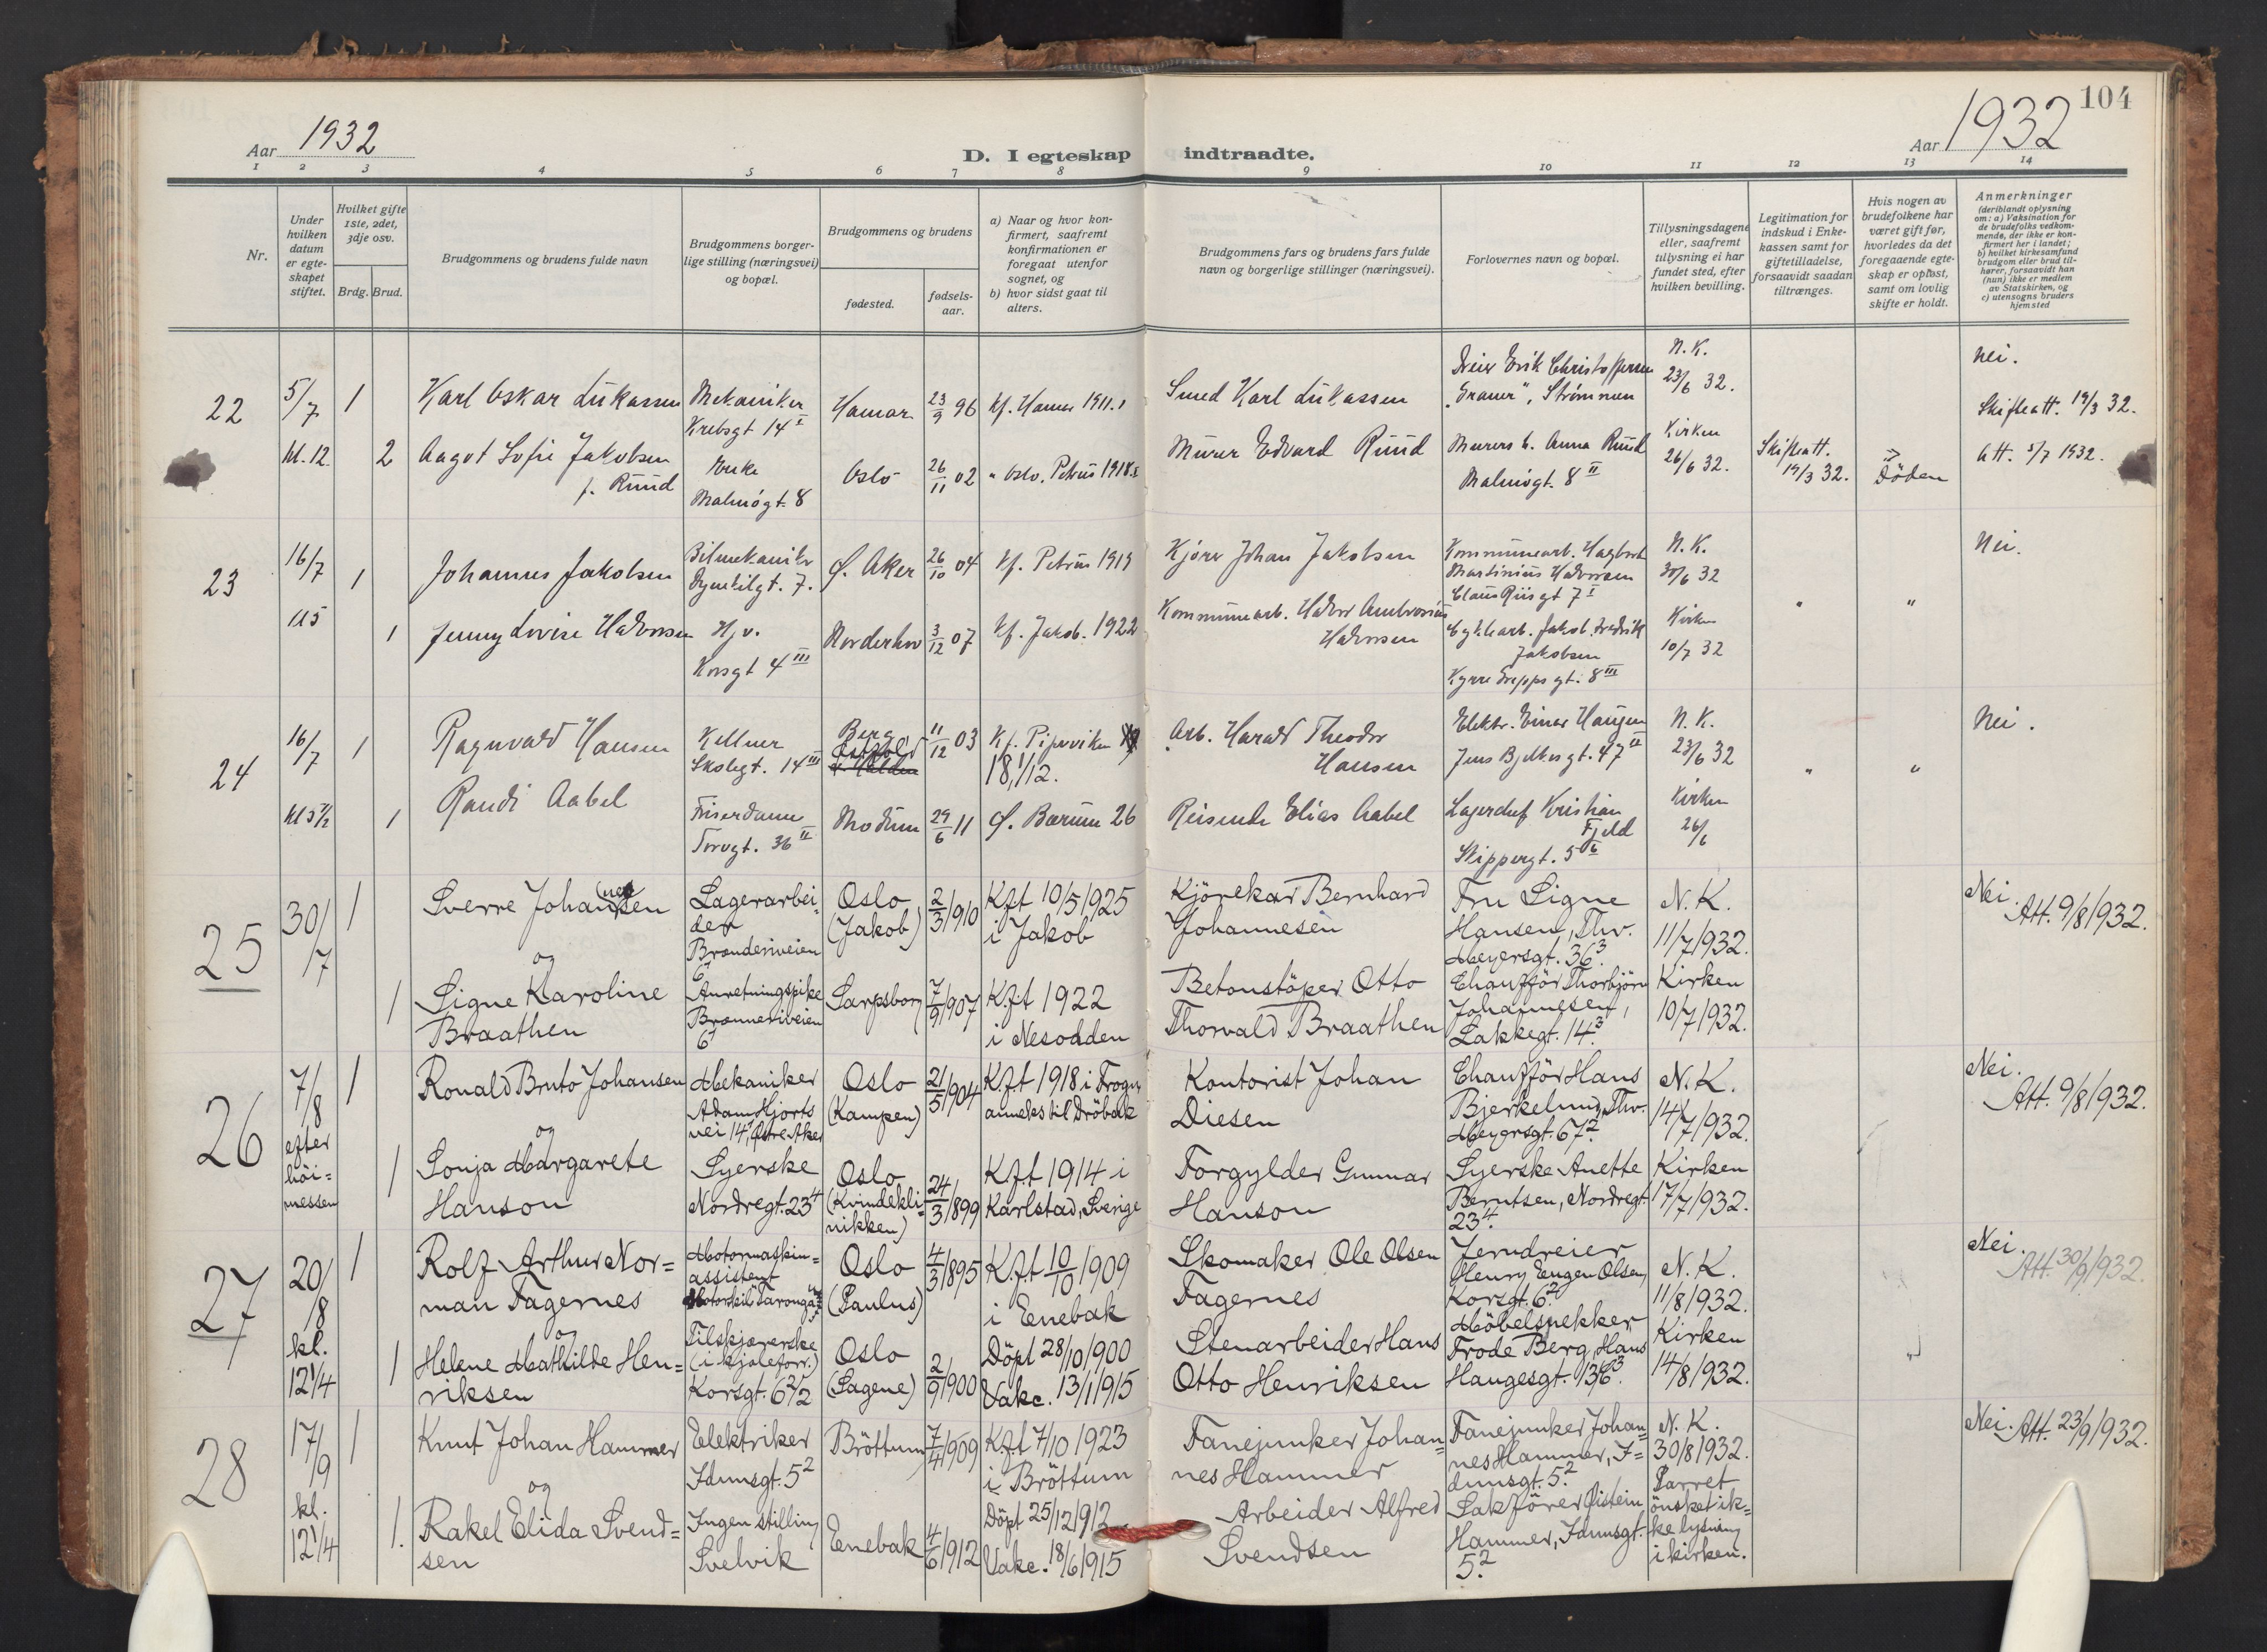 104
Aar 1932
Aar 1932
D. I egteskap indtraadte.
1 2 3 4 5 6 7 8 9 10 11 12 13 14
Nr.
Under hvilken datum er egteskapet stiftet.
Hvilket gifte 1ste, 2det, 3dje osv.
Brdg. Brud.
Brudgommens og brudens fulde navn
Brudgommens borgerlige stilling (næringsvei) og bopæl.
Brudgommens og brudens
fødested.
fødselsaar.
a) Naar og hvor konfirmert, saafremt konfirmationen er foregaat utenfor sognet, og
b) hvor sidst gaat til alters.
Brudgommens fars og brudens fars fulde navn og borgerlige stillinger (næringsvei).
Forlovernes navn og bopæl.
Tillysningsdagene eller, saafremt tillysning ei har fundet sted, efter hvilken bevilling.
Legitimation for indskud i Enkekassen samt for giftetilladelse, forsaavidt saadan tiltrænges.
Hvis nogen av brudefolkene har været gift før, hvorledes da det foregaaende egteskap er opløst, samt om lovlig skifte er holdt.
Anmerkninger
(deriblandt oplysning om: a) Vaksination for de brudefolks vedkommende, der ikke er konfirmert her i landet; b) hvilket kirkesamfund brudgom eller brud tilhører, forsaavidt han (hun) ikke er medlem av Statskirken, og c) utensogns bruders hjemsted
22
5/7
kl. 12
1
Karl Oskar Lukassen
Mekaniker
Krebsgt 14 I
Hamar
23/9 96
Kf. Hamar 1911.
Smed Karl Lukassen
Dreier Erik Christoffersen
"Graner", Strømmen
N.K.
23/6 32.
Nei.
Skifteatt. 19/3 32.
2
Aagot Sofie Jakobsen
f. Ruud
Enke
Malmögt. 8
Oslo
26/11 02
" Oslo, Petrus 1918.
Murer Edvard Ruud
Murers h. Anna Ruud
Malmögt. 8 II
Kirken
26/6 32.
Skifteatt.
19/3 32.
Döden
Att. 5/7 1932.
23
16/7
kl 5
1
Johannes Jakobsen
Bilmekaniker
Dynekilgt. 7.
Ø. Aker
26/10 04
Kf. Petrus 1919
Kjører Johan Jakobsen
Kommunearb. Hagbart
Martinius Halvorsen
Claus Riisgt 7 I
N.K.
30/6 32
Nei.
1
Jenny Lovise Halvorsen
Hjv.
Korsgt 4 III
Norderhov
3/12 07
Kf. Jakob. 1922
Kommunearb. Halvor Ambrosius
Halvorsen
Jakob Fredrik
Jakobsen
Kyrre Greppsgt. 8 III
Kirken
10/7 32
"
"
24
16/7
kl 5 1/2
1
Ragnvald Hansen
Kellner
Skolegt. 14 III
Berg
11/12 03
Kf. Piperviken
18,1/12.
Arb. Harald Theodor
Hansen
Elektr. Einar Haugen
Jens Bjelkesgt. 47 II
N.K.
23/6 32
"
"
Nei.
1
Randi Aabel
Friserdame
Torvgt. 36 II
Modum
29/6 11
Ø. Bærum 26
Reisende Elias Aabel
Lagerchef Kristian
Fjeld
Skippergt. 5
Kirken
26/6
25
30/7
1
Sverre Johannesen
Lagerarbeider
Brenneriveien
6
Oslo
(Jakob)
2/3 1910
Kft 10/5 1925
i Jakob
Kjörekar Bernhard
Johannesen
Fru Signe
Hansen, Thv.
Meyersgt. 36 3.
N.K.
11/7 1932.
Nei.
Att. 9/8 1932.
og
1
Signe Karoline
Braathen
Anretningspike
Brenneriveien
6
Sarpsborg
7/9 1907
Kft 1922
i Nesodden
Betonstöper Otto
Thorvald Braathen
Chauffør Thorbjörn
Johannesen,
Lakkegt. 14 3.
Kirken
10/7 1932.
26
7/8
efter
höi=
messen
1
Ronald Bruto Johansen
Mekaniker
Adam Hjorts
vei 14, Østre Aker
Oslo
(Kampen)
21/5 1904
Kft 1918 i Frogn
anneks til Dröbak
Kontorist Johan
Diesen
Chauffør Hans
Bjerkelund, Thv.
Meyersgt. 67 2.
N.K.
14/7 1932.
Nei.
Att. 9/8 1932.
og
1
Sonja Margarete
Hanson
Syerske
Nordregt. 23 4
Oslo
(Kvindekli=
nikken)
24/3 1899
Kft 1914 i
Karlstad, Sverige
Forgylder Gunnar
Hanson
Syerske Anette
Berntsen, Nordregt.
23 4.
Kirken
17/7 1932.
27
20/8
kl.
12 1/4
1
Rolf Arthur Nor=
man Fagernes
Motormaskin=
assistent
Oslo
(Paulus)
4/3 1895
Kft 10/10 1909
i Enebak
Skomaker Ole Olsen
Fagernes
Jerndreier
Henry Eugen Olsen,
Korsgt. 6 2.
N.K.
11/8 1932.
Nei.
Att. 30/9 1932.
og
1
Helene Mathilde Hen=
riksen
Tilskjærerske
(i kjoleforr.)
Korsgt. 6 2/2
Oslo
(Sagene)
2/9 1900
Döpt 28/10 1900
Vakc. 13/1 1915
Stenarbeider Hans
Otto Henriksen
Möbelsnekker
Frode Berg, Hans
Haugesgt. 13/6 3.
Kirken
14/8 1932.
28
17/9
kl.
12 1/4
1
Knut Johan Hammer
Elektriker
Idunsgt. 5 2
Bröttum
7/4 1909
Kft 7/10 1923
i Bröttum
Fanejunker Johan=
nes Hammer
Fanejunker Johan=
nes Hammer, I=
dunsgt. 5 2.
N.K.
30/8 1932.
Nei. Att. 23/9 1932.
og
1.
Rakel Elida Svend=
sen
Ingen stilling
Svelvik
Enebak
4/6 1912
Döpt 25/12 1912
Vakc. 18/6 1915
Arbeider Alfred
Svendsen
Sakförer Øistein
Hammer, Idunsgt.
5 2.
Parret
önsket ik=
ke lysning
i kirken.